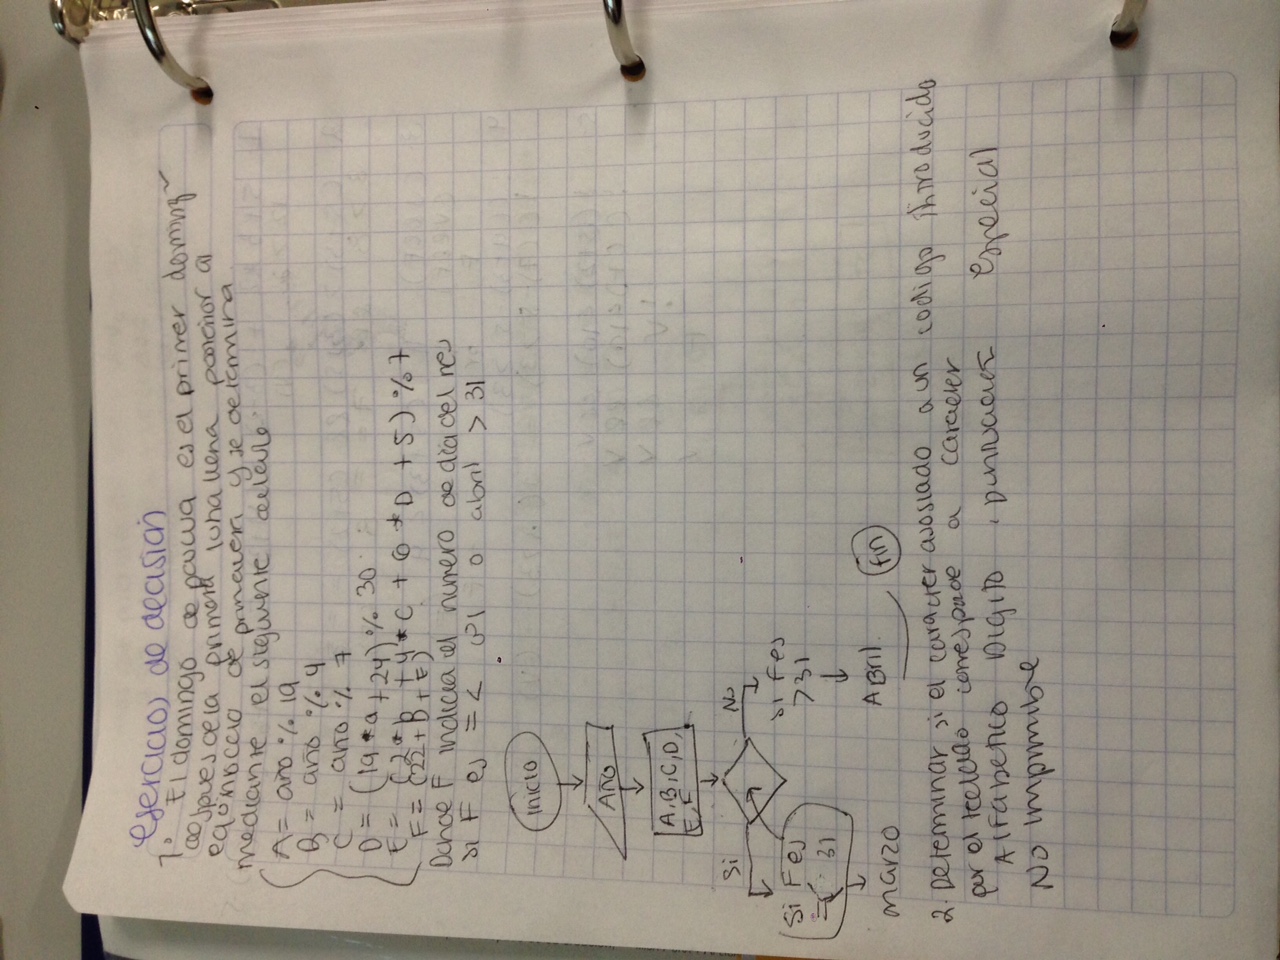 ejercicios de decisión
1° El domingo de pascua es el primer domingo
despues de la primera luna llena posterior al
equinoccio de primavera y se determina
mediante el siguiente calculo.
A = año % 19
B = año % 4
C = año % 7
D = (19 * a + 24) % 30
E = (2 * b + 4 * C + 6 * D + 5) % 7
F = (22 + B + E)
Donde F indica el numero de dia del mes
si F es = < 31 o abril > 31
inicio
Año
A, B, C, D,
E, F
Si No
Si F es
=< 31
si F es
> 31
marzo
ABril.
fin
2. Determinar si el caracter asosiado a un codigo introducido
por el teclado corresponde a caracter
Alfabetico Digito, puntuación especial
No imprimible